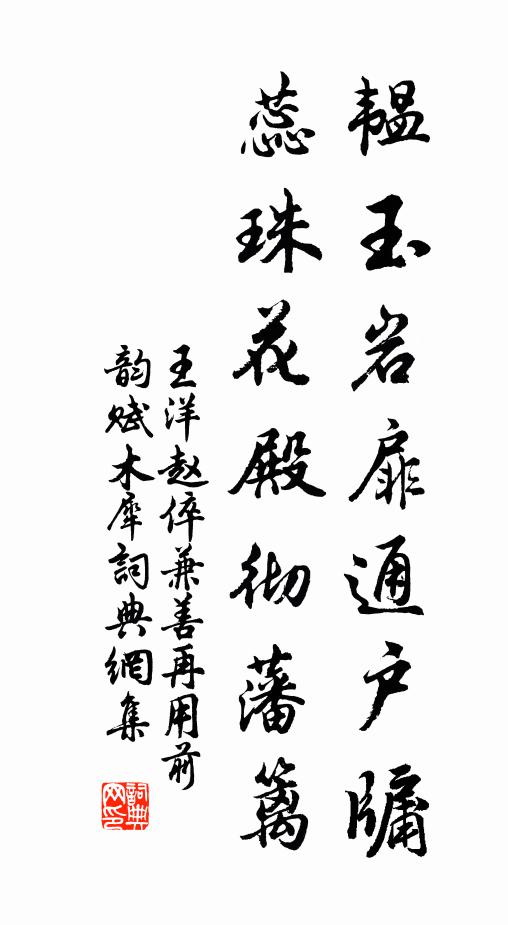 韞玉岩扉通户牖
蕊珠花殿彻藩篱
王洋赵倅兼善再用前
韵赋木犀詞典網集
詞典网印